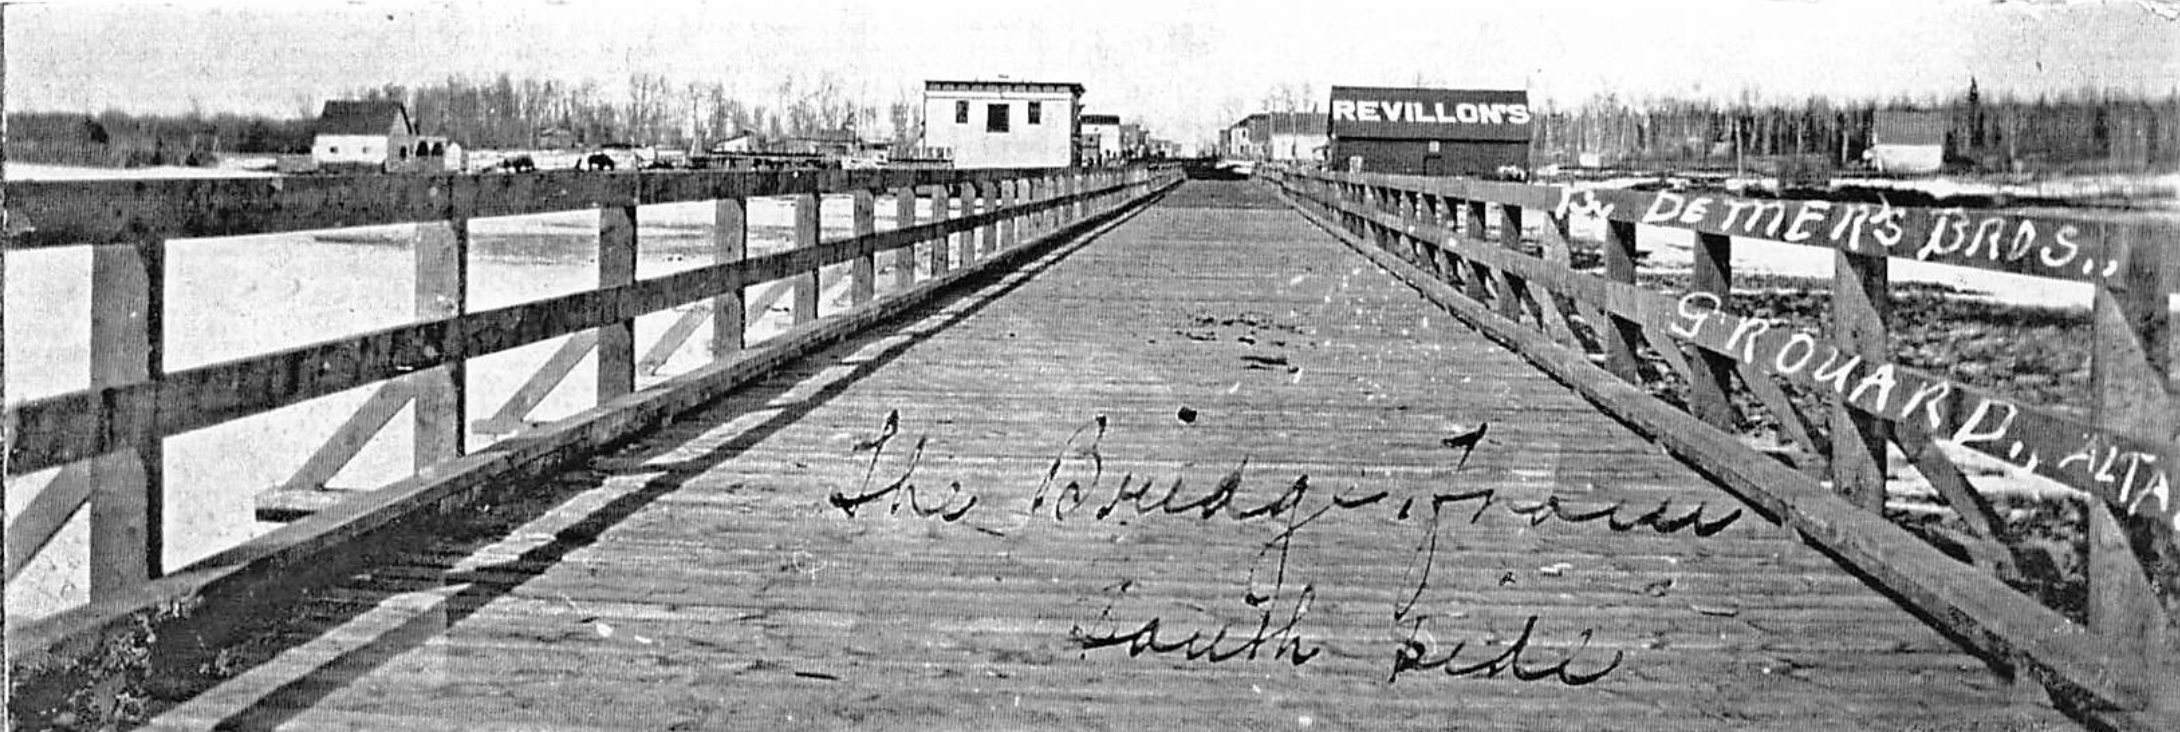 REVILLON'S
By DETMER'S BROS.,,
GROUARD,, ALTA
The Bridge, from
South Side